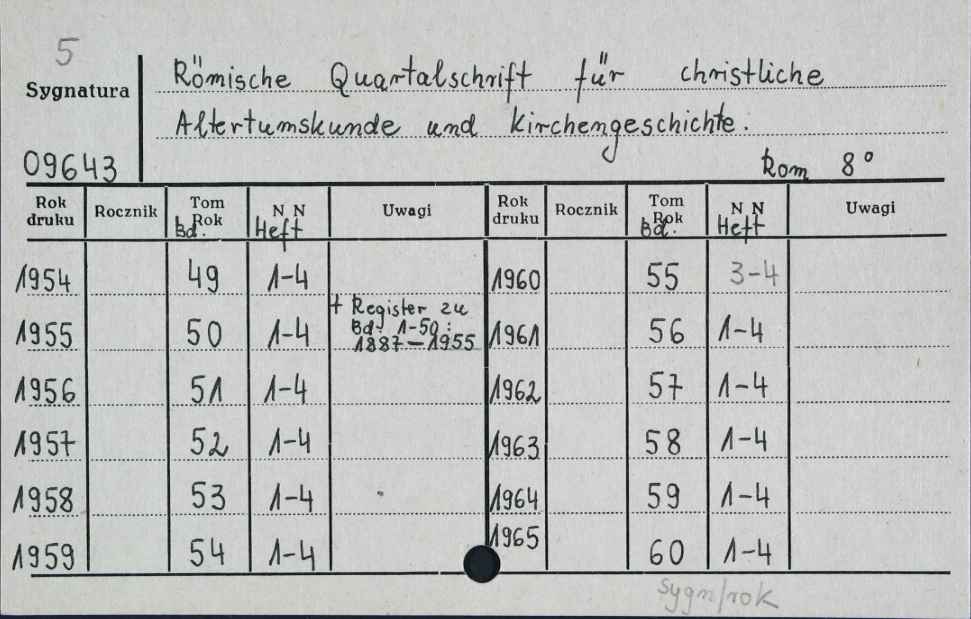 5
Sygnatura
Römische Quartalschrift für christliche
Altertumskunde und Kirchengeschichte.
09643
Rom 8°
Rok druku Rocznik Tom Rok Bd. NN Heft Uwagi Rok druku Rocznik Tom Rok Bd. NN Heft Uwagi
1954 49 1-4 1960 55 3-4
1955 50 1-4 + Register zu Bd. 1-50: 1887-1955 1961 56 1-4
1956 51 1-4 1962 57 1-4
1957 52 1-4 1963 58 1-4
1958 53 1-4 1964 59 1-4
1959 54 1-4 1965 60 1-4
sygn/rok